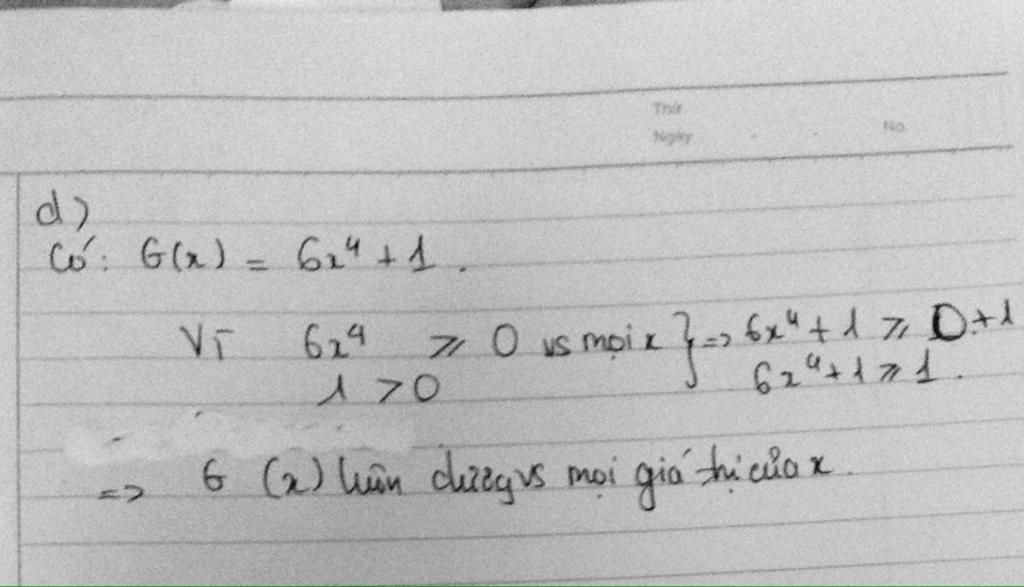 Thứ
Ngày No.
d)
Có: G(x) = 6x⁴ + 1.
Vì 6x⁴ ⩾ 0 vs mọi x } => 6x⁴ + 1 ⩾ 0 + 1
1 > 0 6x⁴ + 1 ⩾ 1.
=> G (x) luôn dương vs mọi giá trị của x.